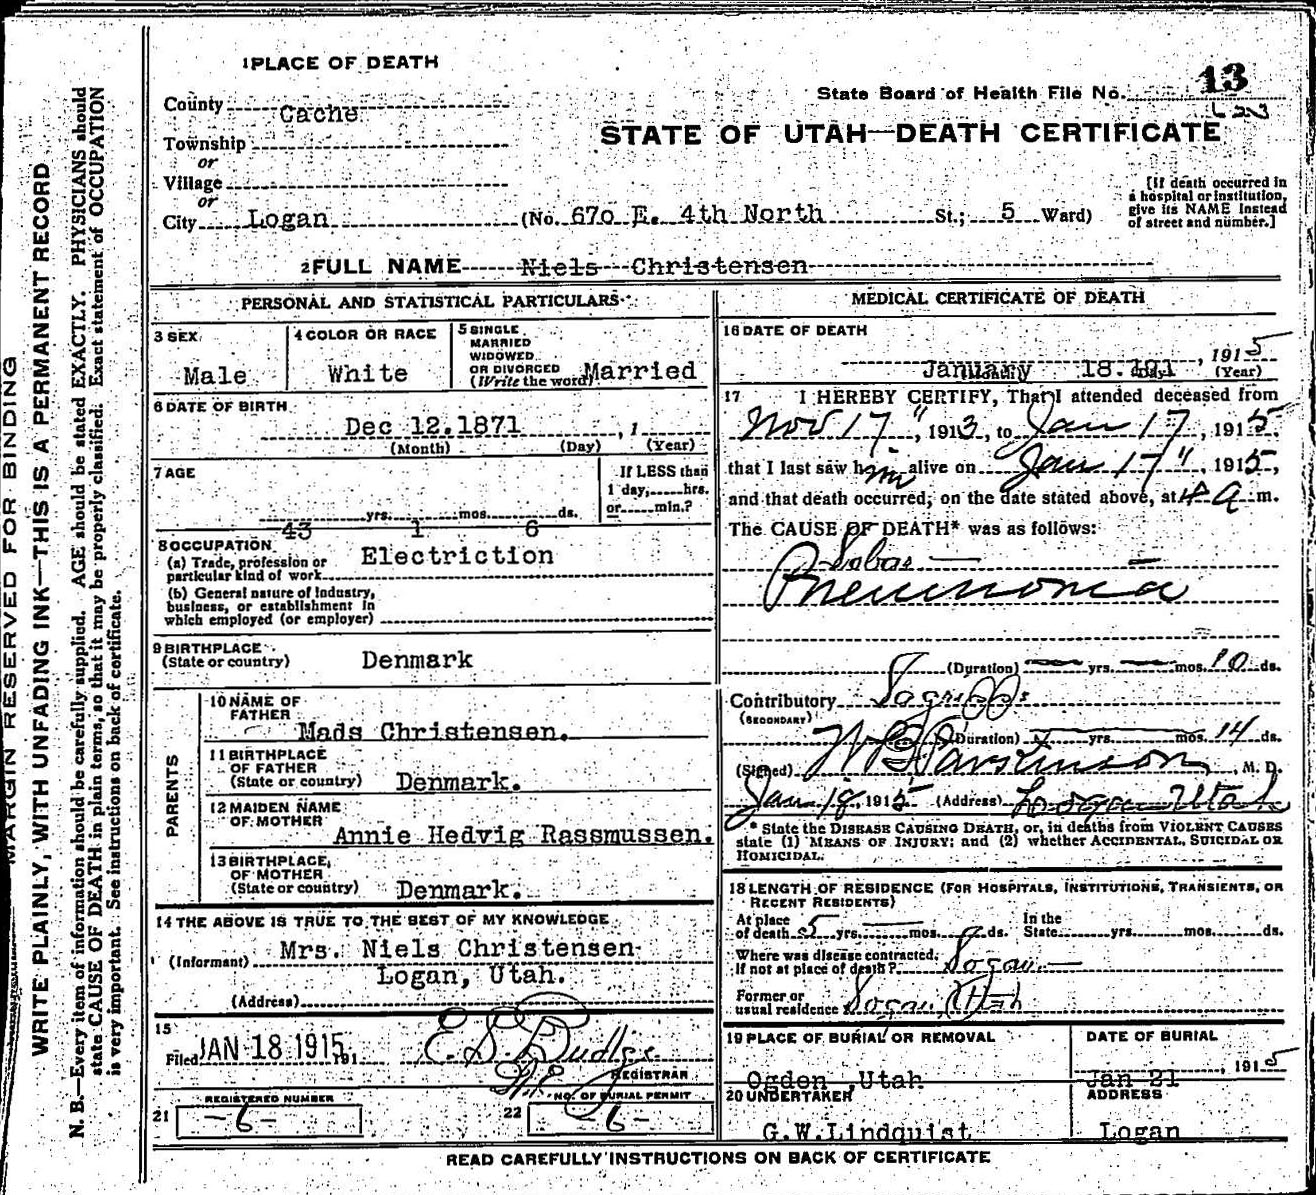 1 PLACE OF DEATH
County Cache
State Board of Health File No. 13
Township
or
STATE OF UTAH—DEATH CERTIFICATE
Village
or
City Logan (No. 670 E. 4th North St.; 5 Ward)
[If death occurred in
a hospital or institution,
give its NAME instead
of street and number.]
2 FULL NAME Niels Christensen
PERSONAL AND STATISTICAL PARTICULARS
3 SEX
Male
4 COLOR OR RACE
White
5 SINGLE
MARRIED
WIDOWED
OR DIVORCED
(Write the word) Married
6 DATE OF BIRTH
Dec 12.1871, 1
(Month) (Day) (Year)
7 AGE
43 yrs. 1 mos. 6 ds.
If LESS than
1 day, hrs.
or min.?
8 OCCUPATION
(a) Trade, profession or
particular kind of work Electriction
(b) General nature of Industry,
business, or establishment in
which employed (or employer)
9 BIRTHPLACE
(State or country) Denmark
PARENTS
10 NAME OF
FATHER
Mads Christensen.
11 BIRTHPLACE
OF FATHER
(State or country) Denmark.
12 MAIDEN NAME
OF MOTHER
Annie Hedvig Rassmussen.
13 BIRTHPLACE
OF MOTHER
(State or country) Denmark.
14 THE ABOVE IS TRUE TO THE BEST OF MY KNOWLEDGE
(Informant) Mrs. Niels Christensen
Logan, Utah.
(Address)
15
Filed JAN 18 1915, 191
REGISTRAR
REGISTERED NUMBER
21 -6-
NO. OF BURIAL PERMIT
22 -6-
MEDICAL CERTIFICATE OF DEATH
16 DATE OF DEATH
January 18.191, 1915
(Month) (Day) (Year)
17 I HEREBY CERTIFY, That I attended deceased from
Nov 17", 1913, to Jan 17, 1915,
that I last saw him alive on Jan 17", 1915,
and that death occurred, on the date stated above, at 4 a m.
The CAUSE OF DEATH* was as follows:
Lobar
Pneumonia
(Duration) — yrs. — mos. 10 ds.
Contributory Lagrippe
(SECONDARY)
(Duration) yrs. mos. 14 ds.
(Signed) W B Parkinson, M. D.
Jan 18, 1915 (Address) Logan Utah
* State the DISEASE CAUSING DEATH, or, in deaths from VIOLENT CAUSES
state (1) MEANS OF INJURY; and (2) whether ACCIDENTAL, SUICIDAL OR
HOMICIDAL.
18 LENGTH OF RESIDENCE (FOR HOSPITALS, INSTITUTIONS, TRANSIENTS, OR
RECENT RESIDENTS)
At place
of death 5 yrs. mos. ds.
In the
State yrs. mos. ds.
Where was disease contracted,
If not at place of death? Logan
Former or
usual residence Logan Utah
19 PLACE OF BURIAL OR REMOVAL
Ogden ,Utah
DATE OF BURIAL
Jan 21, 1915
20 UNDERTAKER
G.W.Lindquist
ADDRESS
Logan
READ CAREFULLY INSTRUCTIONS ON BACK OF CERTIFICATE
MARGIN RESERVED FOR BINDING
WRITE PLAINLY, WITH UNFADING INK—THIS IS A PERMANENT RECORD
N. B.—Every item of information should be carefully supplied. AGE should be stated EXACTLY. PHYSICIANS should
state CAUSE OF DEATH in plain terms, so that it may be properly classified. Exact statement of OCCUPATION
is very important. See instructions on back of certificate.